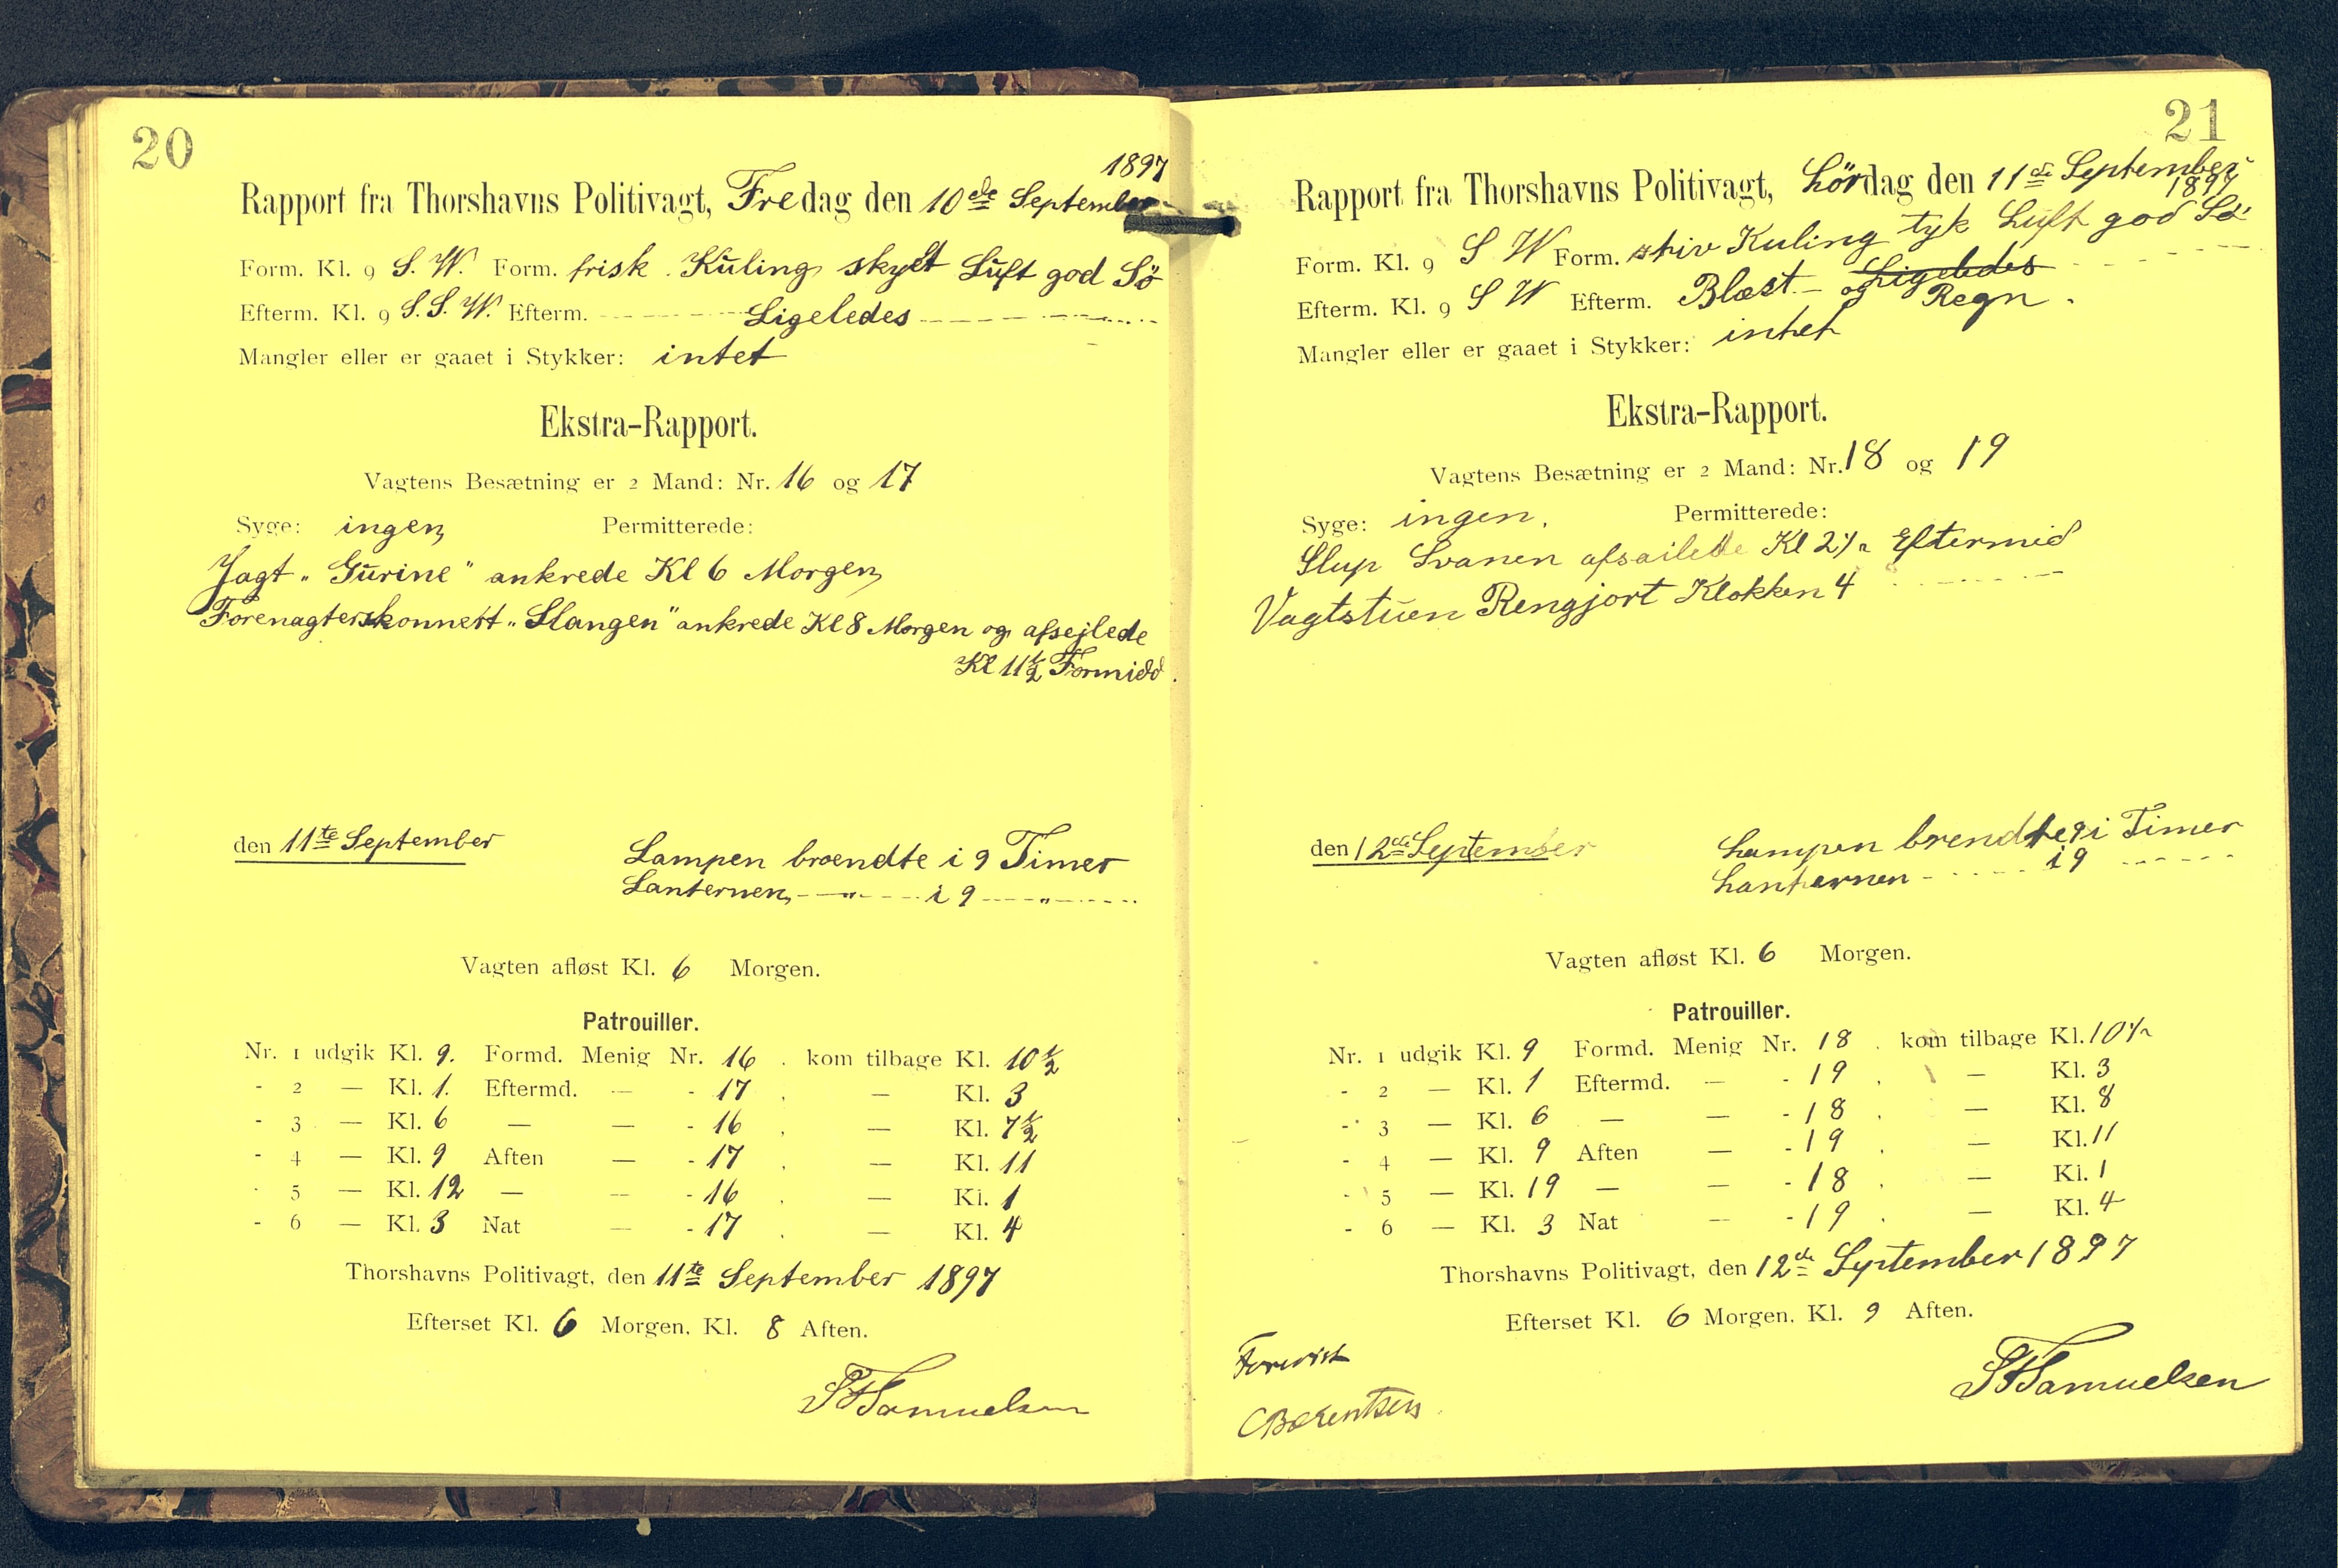 20
1897
Rapport fra Thorshavns Politivagt, Fredag den 10de September
Form. Kl. 9 S. W. Form. frisk Kuling skyet Luft god Sö
Efterm. Kl. 9 S. S. W. Efterm. Ligeledes
Mangler eller er gaaet i Stykker: intet
Ekstra-Rapport.
Vagtens Besætning er 2 Mand: Nr. 16 og 17
Syge: ingen Permitterede:
Jagt „Gurine" ankrede Kl 6 Morgen
Forenagterskonnert „Slangen" ankrede Kl 8 Morgen og afsejlede
Kl 11½ Formidd.
den 11te September
Lampen broendte i 9 Timer
Lanternen — „ — i 9 — „ —
Vagten afløst Kl. 6 Morgen.
Patrouiller.
Nr. 1 udgik Kl. 9. Formd. Menig Nr. 16 . kom tilbage Kl. 10½
- 2 — Kl. 1. Eftermd. — - 17 . — Kl. 3
- 3 — Kl. 6 — — - 16 . — Kl. 7½
- 4 — Kl. 9 Aften — - 17 . — Kl. 11
- 5 — Kl. 12 — — - 16 . — Kl. 1
- 6 — Kl. 3 Nat — - 17 . — Kl. 4
Thorshavns Politivagt, den 11te September 1897
Efterset Kl. 6 Morgen, Kl. 8 Aften.
Samuelsen
21
Rapport fra Thorshavns Politivagt, Lördag den 11de September
1897
Form. Kl. 9 S W Form. stiv Kuling tyk Luft god Sö
Efterm. Kl. 9 S W Efterm. Blæst — Ligeledes
og Regn.
Mangler eller er gaaet i Stykker: intet
Ekstra-Rapport.
Vagtens Besætning er 2 Mand: Nr. 18 og 19
Syge: ingen. Permitterede:
Slup Svanen afsailede Kl 2½ Eftermid
Vagtstuen Rengjort Klokken 4
den 12de September
Lampen brendte 9 i Timer
Lanternen - - - i 9 - - -
Vagten afløst Kl. 6 Morgen.
Patrouiller.
Nr. 1 udgik Kl. 9 Formd. Menig Nr. 18 . kom tilbage Kl. 10½
- 2 — Kl. 1 Eftermd. — - 19 . — Kl. 3
- 3 — Kl. 6 — — - 18 . — Kl. 8
- 4 — Kl. 9 Aften — - 19 . — Kl. 11
- 5 — Kl. 19 — — - 18 . — Kl. 1
- 6 — Kl. 3 Nat — - 19 . — Kl. 4
Thorshavns Politivagt, den 12de September 1897
Efterset Kl. 6 Morgen, Kl. 9 Aften.
Forevist
CBærentsen
Samuelsen